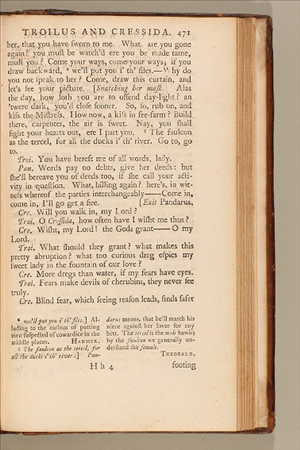 TROILUS AND CRESSIDA. 471
her, that you have sworn to me. What, are you gone
again? you must be watch'd ere you be made tame,
must you? Come your ways, come your ways; if you
draw backward, * we'll put you i' th' files.—Why do
you not speak to her? Come, draw this curtain, and
let's see your picture. [Snatching her mask. Alas
the day, how loth you are to offend day-light? an
'twere dark, you'd close sooner. So, so, rub on, and
kiss the Mistress. How now, a kiss in fee-farm? Build
there, carpenter, the air is sweet. Nay, you shall
fight your hearts out, ere I part you. The faulcon
as the tercel, for all the ducks i' th' river. Go to, go
to.
Troi. You have bereft me of all words, lady.
Pan. Words pay no debts, give her deeds: but
she'll bereave you of deeds too, if she call your acti-
vity in question. What, billing again? here's, in wit-
ness whereof the parties interchangeably——Come in,
come in, I'll go get a fire. [Exit Pandarus.
Cre. Will you walk in, my Lord?
Troi. O Cressida, how often have I wisht me thus?
Cre. Wisht, my Lord! the Gods grant——O my
Lord.
Troi. What should they grant? what makes this
pretty abruption? what too curious dreg espies my
sweet lady in the fountain of our love?
Cre. More dregs than water, if my fears have eyes.
Troi. Fears make devils of cherubins, they never see
truly.
Cre. Blind fear, which seeing reason leads, finds safer
* we'll put you i' th' files.] Al-
luding to the custom of putting
men suspected of cowardice in the
middle places. HANMER.
The faulcon as the tercel, for
all the ducks i' th' river:] Pan-
darus means, that he'll match his
niece against her lover for any
bett. The tercel is the male hawk;
by the faulcon we generally un-
derstand the female.
THEOBALD.
H h 4 footing